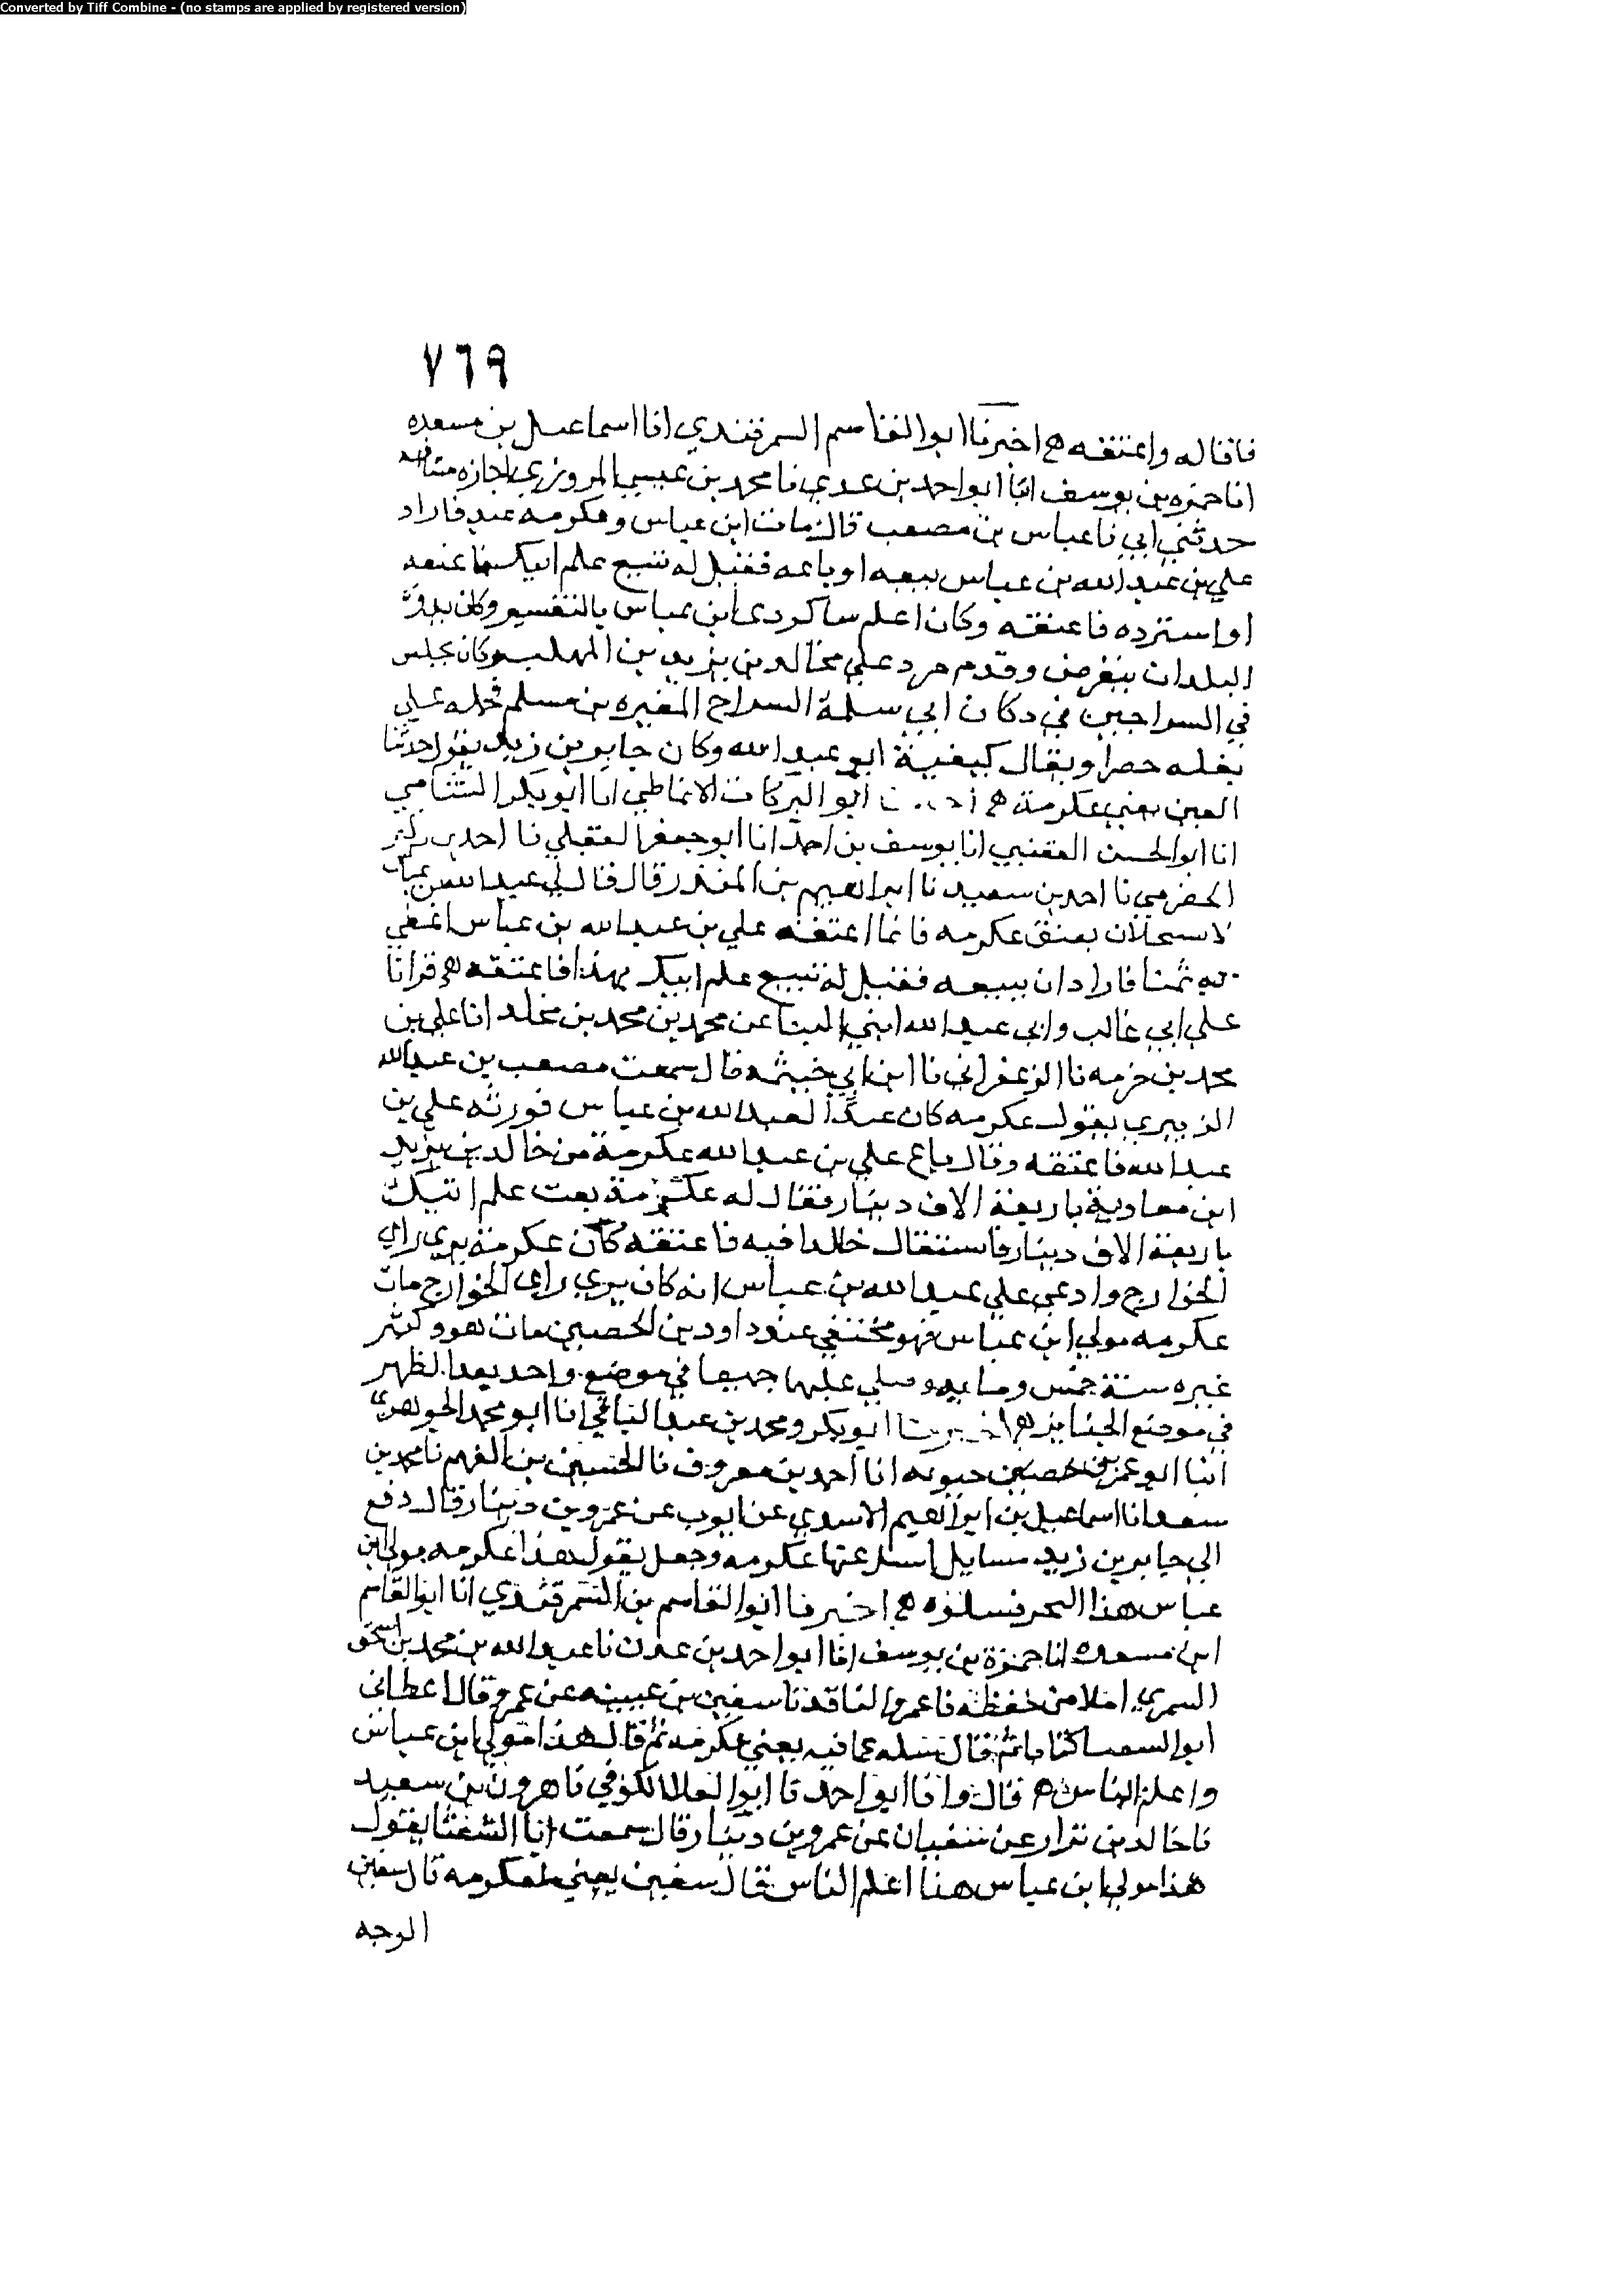 Converted by Tiff Combine - (no stamps are applied by registered version)
٧٦٩
فاقاله واعتقه ه اخبرنا ابو القاسم السمرقندي انا اسماعيل بن مسعده
انا حمزه بن يوسف انا ابو احمد بن عدي نا محمد بن عيسي المروزي اجازه مشافهه
حدثني ابي نا عباس بن مصعب قال مات ابن عباس وعكرمه عبد فاراد
علي بن عبد الله بن عباس بيعه او باعه فقيل له تبيع علم ابيك فاعتقه
او استرده فاعتقه وكان اعلم شاكردى ابن عباس بالتفسير وكان يدور
البلدان يتعرض وقدم مرو علي مخالد بن يزيد بن المهلب وكان يجلس
في السراجين في دكان ابي سلمة السراج المغيره بن مسلم فحمله علي
بغله خضرا ويقال كنيته ابو عبد الله وكان جابر بن زيد يقول حدثنا
العين يعني عكرمة ه ابو البركات الانماطي انا ابو بكر الشامي
انا ابو الحسن العتيقي انا يوسف بن احمد انا ابو جعفر العقيلي نا احمد بن
الحضرمي نا احمد بن سعيد نا ابراهيم بن المنذر قال قال لي عبد الله بن عباس
بعتق عكرمه فانما اعتقه علي بن عبد الله بن عباس
به ثمنا فاراد ان يبيعه فقيل له تبيع علم ابيك بهذا فاعتقه ه قرانا
علي ابي غالب وابي عبد الله ابني البنا عن محمد بن محمد بن مخلد انا علي بن
محمد بن خزمه نا الزعفراني نا ابن ابي خيثمه قال سمعت مصعب بن عبد الله
الزبيري يقول عكرمه كان عبدًا لعبد الله بن عباس فورثه علي بن
عبد الله فاعتقه وقال باع علي بن عبد الله عكرمة من خالد بن يزيد
ابن معاوية باربعة الاف دينار فقال له عكرمة بعت علم ابيك
باربعة الاف دينار فاستقال خالدا فيه فاعتقه كان عكرمة يرى راي
الخوارج وادعى علي عبد الله بن عباس انه كان يري راي الخوارج مات
عكرمه مولي ابن عباس فهو مختفي عند داود بن الحصين مات هو وكثير
غيره سنة خمس ومايه وصلي عليها جميعا في موضع واحد بعد الظهر
في موضع الجنايز ه اخبرنا ابو بكر ومحمد بن عبد الباقي انا ابو محمد الجوهري
انبا ابو عمر بن حيويه انا احمد بن معروف نا الحسين بن الفهم نا محمد بن
سعد انا اسماعيل بن ابراهيم الاسدي عن ايوب عن عمرو بن دينار قال دفع
الي جابر بن زيد مسايل اسل عنها عكرمه وجعل يقول هذا عكرمه مولي ابن
عباس هذا البحر فسلوه ه اخبرنا ابو القاسم بن السمرقندي انا ابو القاسم
ابن مسعده انا حمزة بن يوسف انا ابو احمد بن عدي نا عبد الله بن محمد بن اسحق
السمري املا من حفظه نا عمرو الناقد نا سفين بن عيينه عن عمرو قال اعطاني
ابو الشعسا كتابا ثم قال سله عما فيه يعني عكرمه ثم قال هذا مولي ابن عباس
واعلم الناس ه قال وانا ابو احمد نا ابو العلا الكوفي نا هرون بن سعيد
نا خالد بن نزار عن سفيان عن عمرو بن دينار قال سمعت ابا الشعثا يقول
هذا مولي ابن عباس هذا اعلم الناس قال سفين يعني عكرمه قال سفين
الوجه